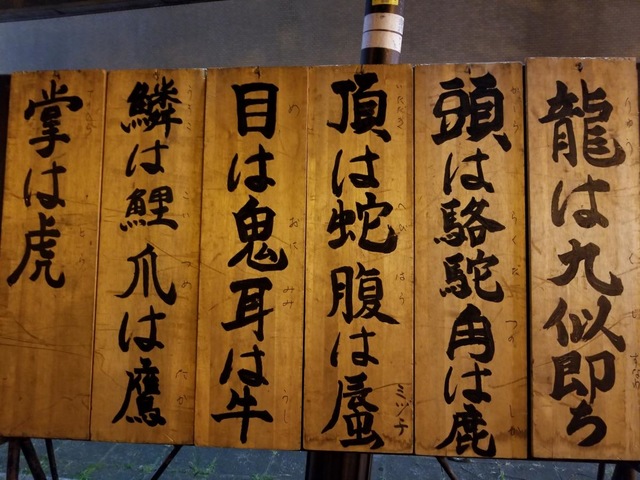 龍は九似即ち
頭は駱駝角は鹿
頂は蛇腹は蜃
ミヅチ
目は鬼耳は牛
鱗は鯉爪は鷹
掌は虎